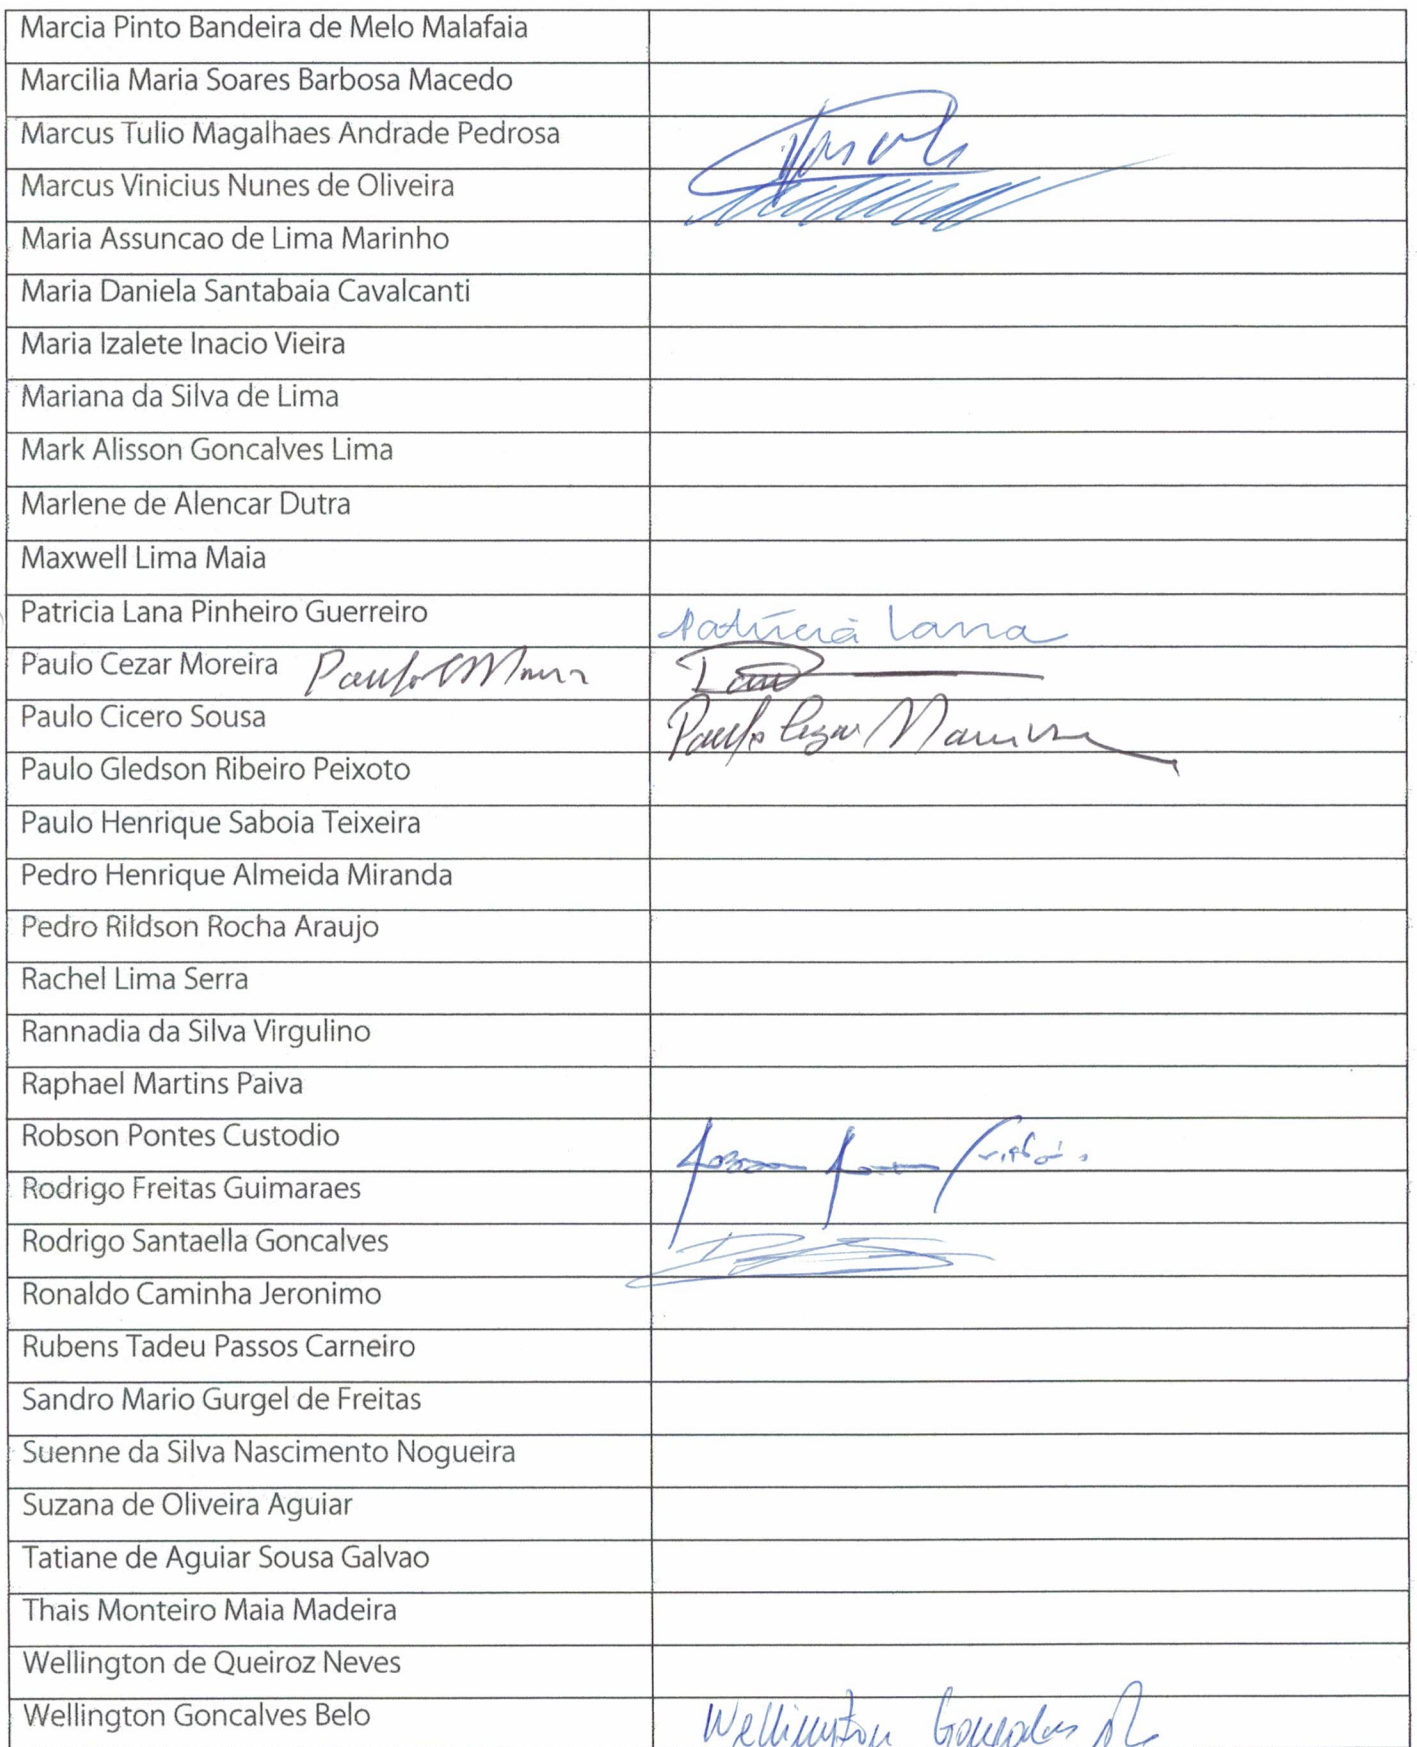 Marcia Pinto Bandeira de Melo Malafaia
Marcilia Maria Soares Barbosa Macedo
Marcus Tulio Magalhaes Andrade Pedrosa
Marcus Vinicius Nunes de Oliveira
Maria Assuncao de Lima Marinho
Maria Daniela Santabaia Cavalcanti
Maria Izalete Inacio Vieira
Mariana da Silva de Lima
Mark Alisson Goncalves Lima
Marlene de Alencar Dutra
Maxwell Lima Maia
Patricia Lana Pinheiro Guerreiro Patrícia Lana
Paulo Cezar Moreira Paulo
Paulo Cicero Sousa Paulo Cezar
Paulo Gledson Ribeiro Peixoto
Paulo Henrique Saboia Teixeira
Pedro Henrique Almeida Miranda
Pedro Rildson Rocha Araujo
Rachel Lima Serra
Rannadia da Silva Virgulino
Raphael Martins Paiva
Robson Pontes Custodio
Rodrigo Freitas Guimaraes
Rodrigo Santaella Goncalves
Ronaldo Caminha Jeronimo
Rubens Tadeu Passos Carneiro
Sandro Mario Gurgel de Freitas
Suenne da Silva Nascimento Nogueira
Suzana de Oliveira Aguiar
Tatiane de Aguiar Sousa Galvao
Thais Monteiro Maia Madeira
Wellington de Queiroz Neves
Wellington Goncalves Belo Wellington Gonçalves